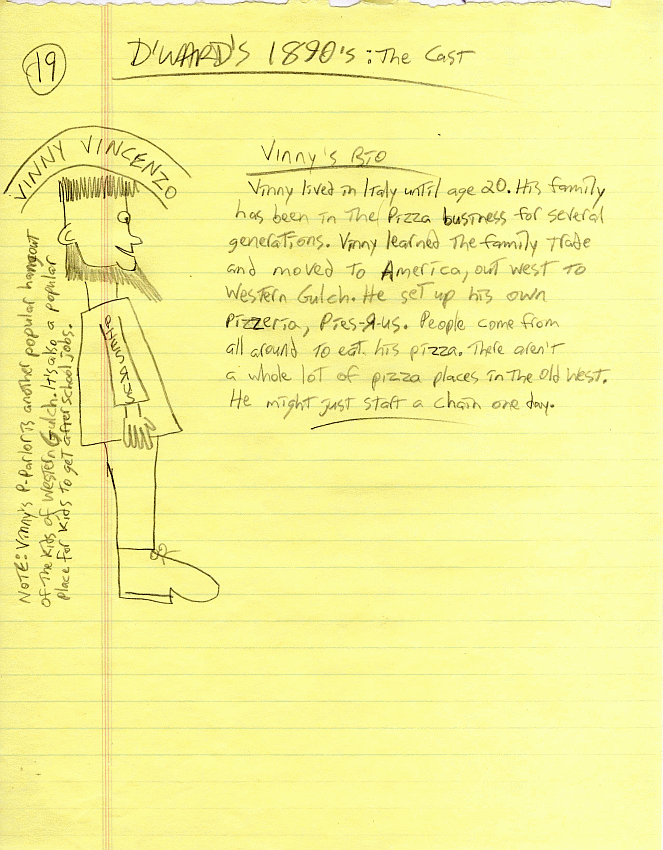 19
D'WARD'S 1890's: The Cast
VINNY VINCENZO
Vinny's Bio
Vinny lived in Italy until age 20. His family
has been in The Pizza business for several
generations. Vinny learned The family trade
and moved to America, out west to
Western Gulch. He set up his own
Pizzeria, Pies-Я-us. People come from
all around to eat his pizza. There aren't
a whole lot of pizza places in the old west.
He might just start a chain one day.
NOTE: Vinny's P-Parlor is another popular hangout
of the kids of Western Gulch. It's also a popular
place for kids to get after school jobs.